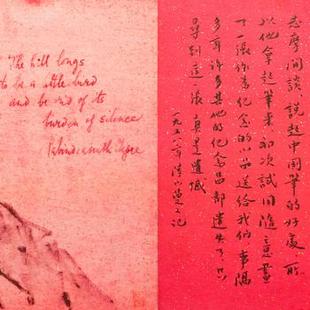 The hill longs
to be a little bird
and be rid of its
burden of silence
Rabindranath Tagore
志摩閒談說起中國筆的好處所
以他拿起筆來初次試用隨意畫
了一張作為紀念的小品送給我們事隔
多年許多其他的紀念品都遺失了只
尋到這一張真是遺憾
一九五八年陸小曼記